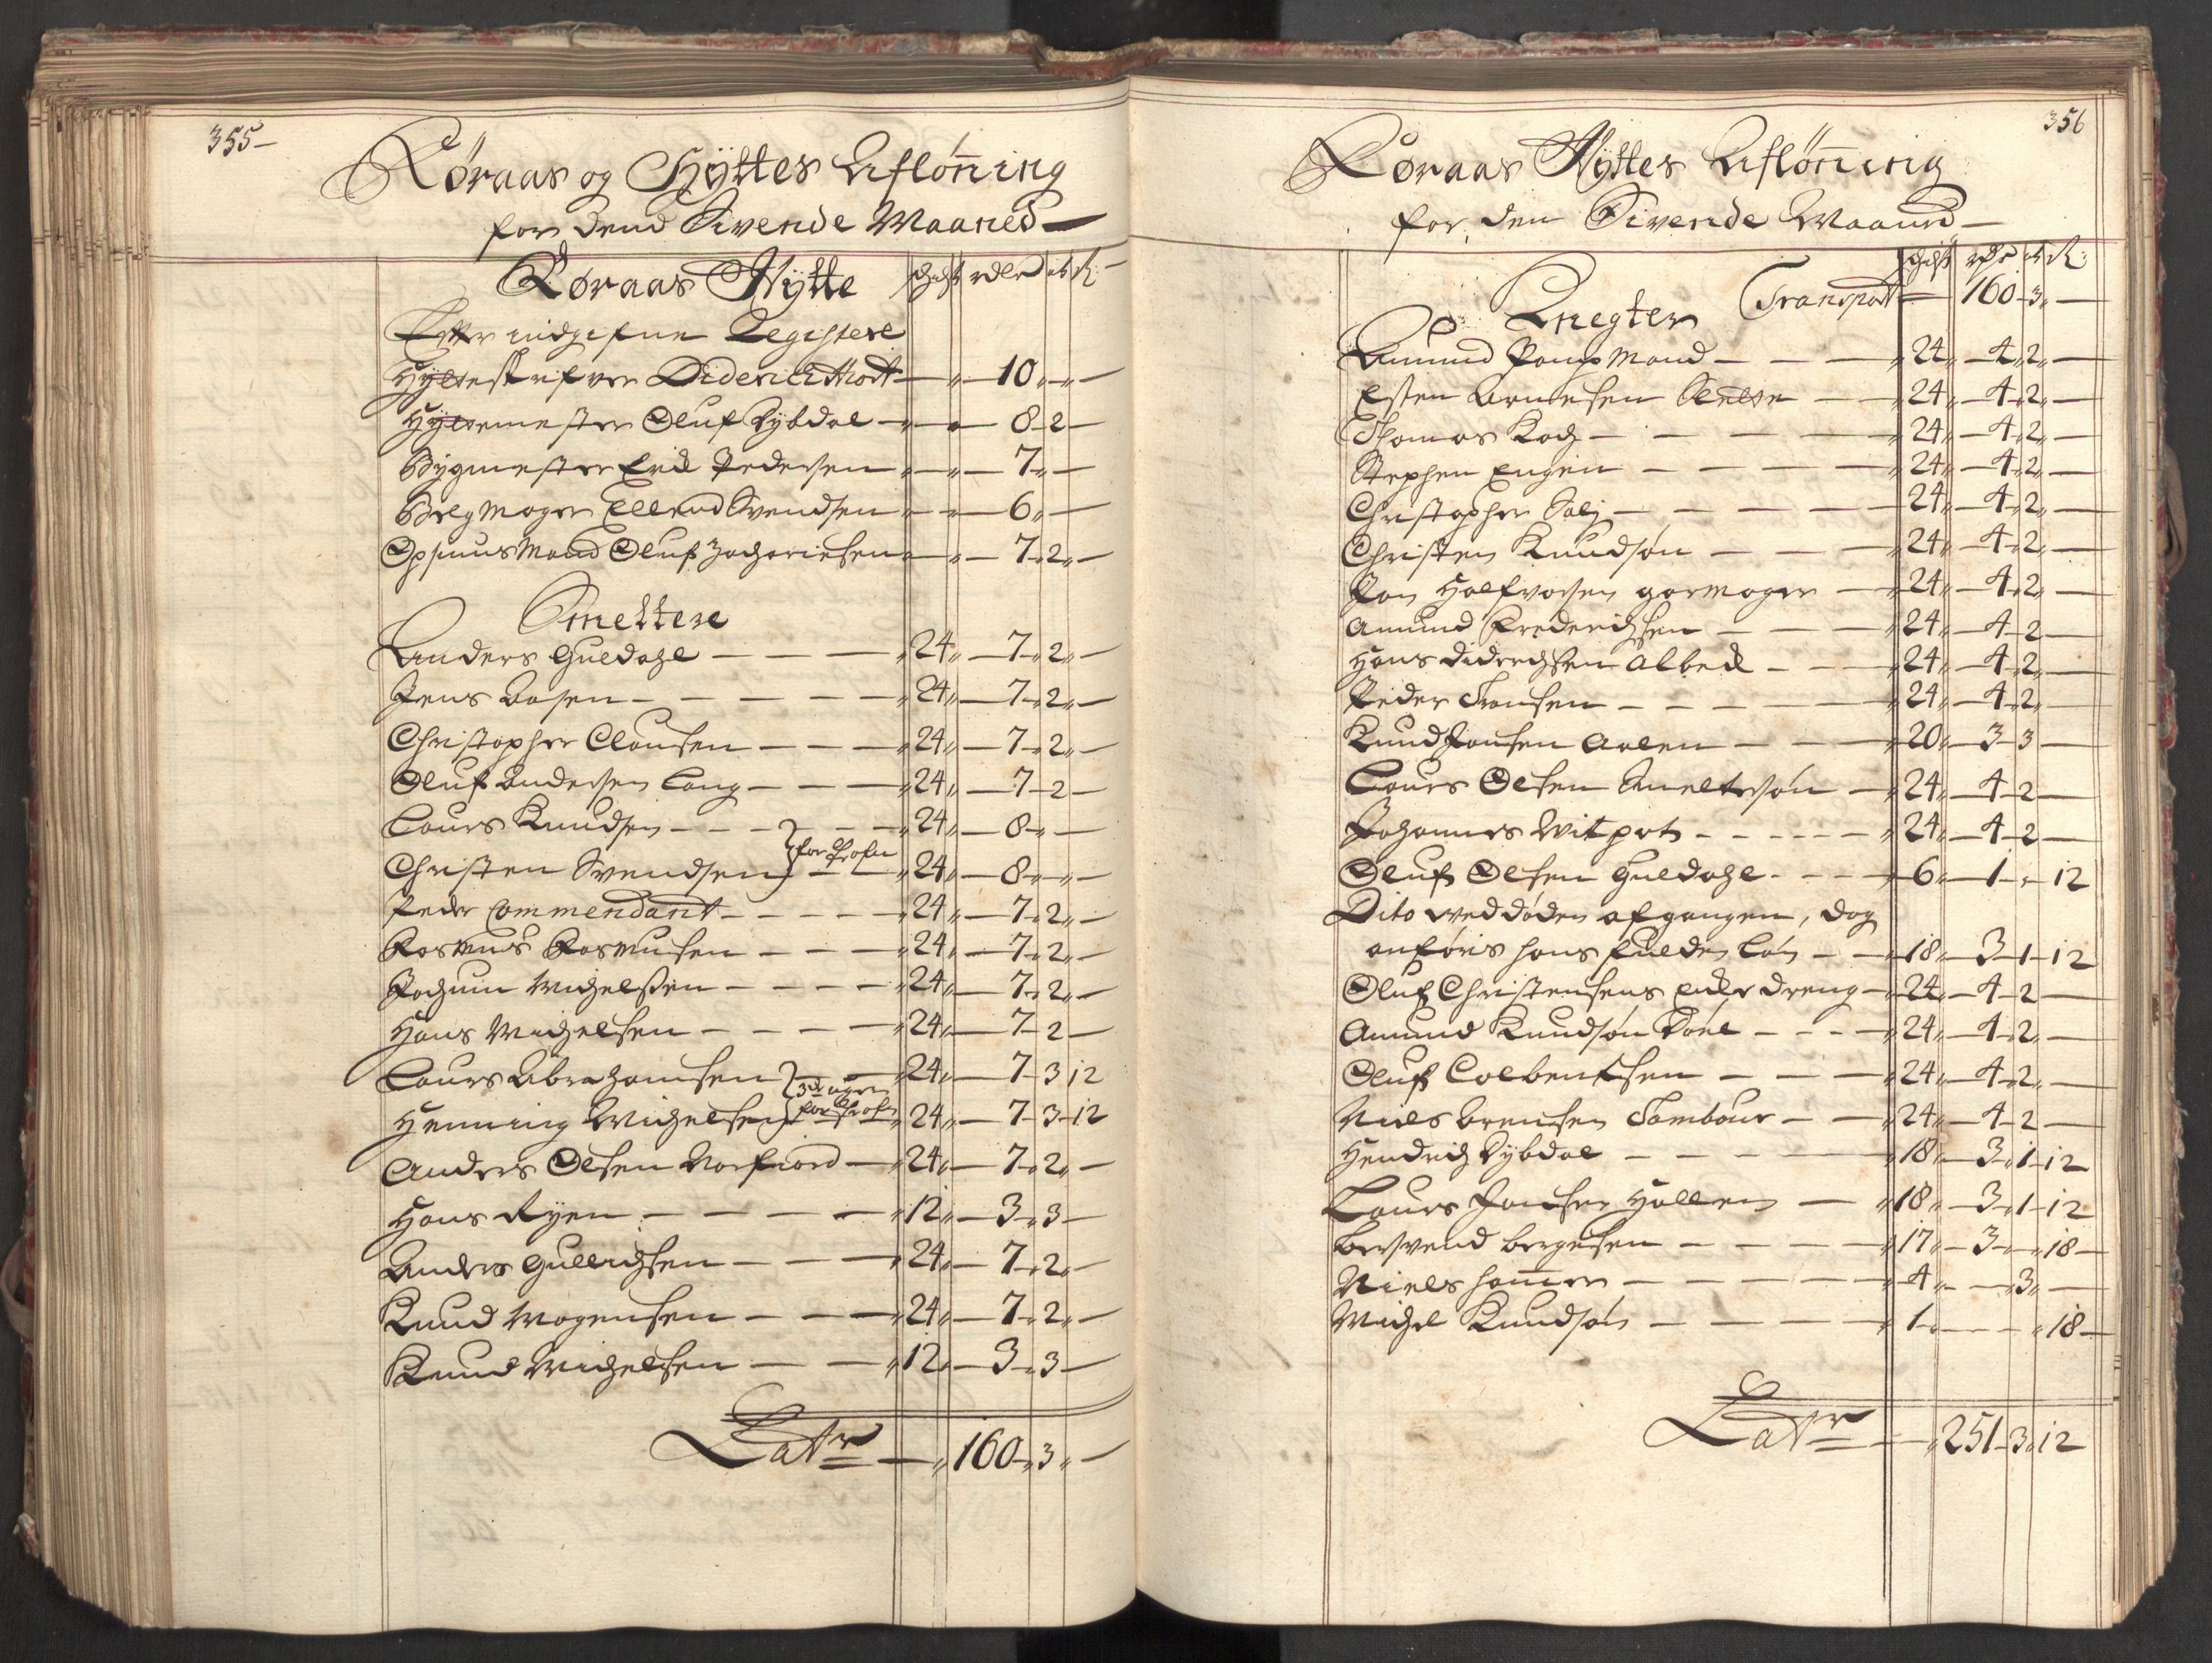 355
Røraas og Hÿttes Afløn̄ing
for dend Sivende Maaned
Røraas Hÿtte schicht rdlr ort s:
Efter indgifne Registere
Hÿtteskrifver Diderich Mort — " — 10 " — " —
Hÿttemester Oluf Dybdal — " — 8 - 2 —
Bÿgmester Erich Pedersen — " — 7 " —
Belgmager Ellend Svendsen — " — 6 " —
Opsiunsmand Oluf Zachariesen — " — 7 " 2 " —
Smeltere
Anders Guldahl — — — " 24 " — 7 " 2 " —
Jens Aasen — — — — — " 24 " — 7 " 2 " —
Christopher Clausen — — — " 24 " — 7 " 2 " —
Oluf Andersen Lang — — — " 24 " — 7 - 2 —
Lours Knudsen — — — " 24 " — 8 " —
for Profn
Christen Svendsen — " 24 " — 8 " — " —
Peder Commendant — — — — " 24 " — 7 " 2 " —
Rasmus Rasmusen — — — " 24 " — 7 " 2 " —
Jochum Michelsen — — — — " 24 " — 7 " 2 " —
Hans Michelsen — — — — " 24 " — 7 - 2 —
Lours Abrahamsen — " 24 " — 7 - 3 12
3de uger
for Profn
Henning Michelsen 24 " — 7 - 3 - 12
Anders Olsen Norfiord — " 24 " — 7 " 2 " —
Hans Ryen — — — — " 12 " — 3 " 3 —
Anders Gullichsen — — — " 24 " — 7 " 2 " —
Knud Mogensen — — — " 24 " — 7 " 2 " —
Knud Michelsen — — " 12 " — 3 " 3 —
Latr — " 160 " 3 " —
356
Røraas Hÿttes Afløn̄ing
for den Sivende Maaned
schicht rdlr ort s:
Transport — 160 - 3 " —
Knegter
Amund Pampmand — — — " 24 " — 4 " 2 " —
Esten Arnesen — — " 24 " — 4 " 2 " —
Thomas Koch — — — — — " 24 " — 4 " 2 " —
Stephen Engen — — — — " 24 " — 4 " 2 " —
Christopher Salj — — — — " 24 " — 4 " 2 " —
Christen Knudsøn — — — " 24 " — 4 " 2 " —
Jon Halfvorsen garmager — " 24 " — 4 " 2 " —
Amund Frederichsen — — — " 24 " — 4 - 2 —
Hans Didrechsen Albed — — " 24 " — 4 - 2 " —
Peder Transen — — — — — " 24 " — 4 " 2 " —
Knud Jonsen Aalen — — — " 20 " — 3 - 3 —
Lours Olsen Smeltersøn — " 24 " — 4 - 2 —
Johannes Witpot — — — — — " 24 " — 4 - 2 —
Oluf Olsen Guldahl — — — — 6 " — 1 - " - 12
Dito ved døden afgangen, dog
anføris hans fulde Løn — — 18 " — 3 - 1 - 12
Oluf Christensens dreng — 24 " — 4 - 2 —
Amund Knudsøn — — — 24 " — 4 - 2 " —
Oluf Colbentsen — — — " 24 " — 4 - 2 " —
Niels Brensen Tambour — — " 24 " — 4 - 2 —
Hendrich Dybdal — — — — — " 18 " — 3 " 1 - 12
Lours Jonsen Hallen — " 18 " — 3 " 1 - 12
Bersvend Bergesen — — — — " 17 " — 3 — " 18 —
Niels Ham̄er — — — — — " 4 " — — 3 " —
Michel Knudsøn — — — — " 1 " — — — " 18 —
Latr — " 251 - 3 " 12